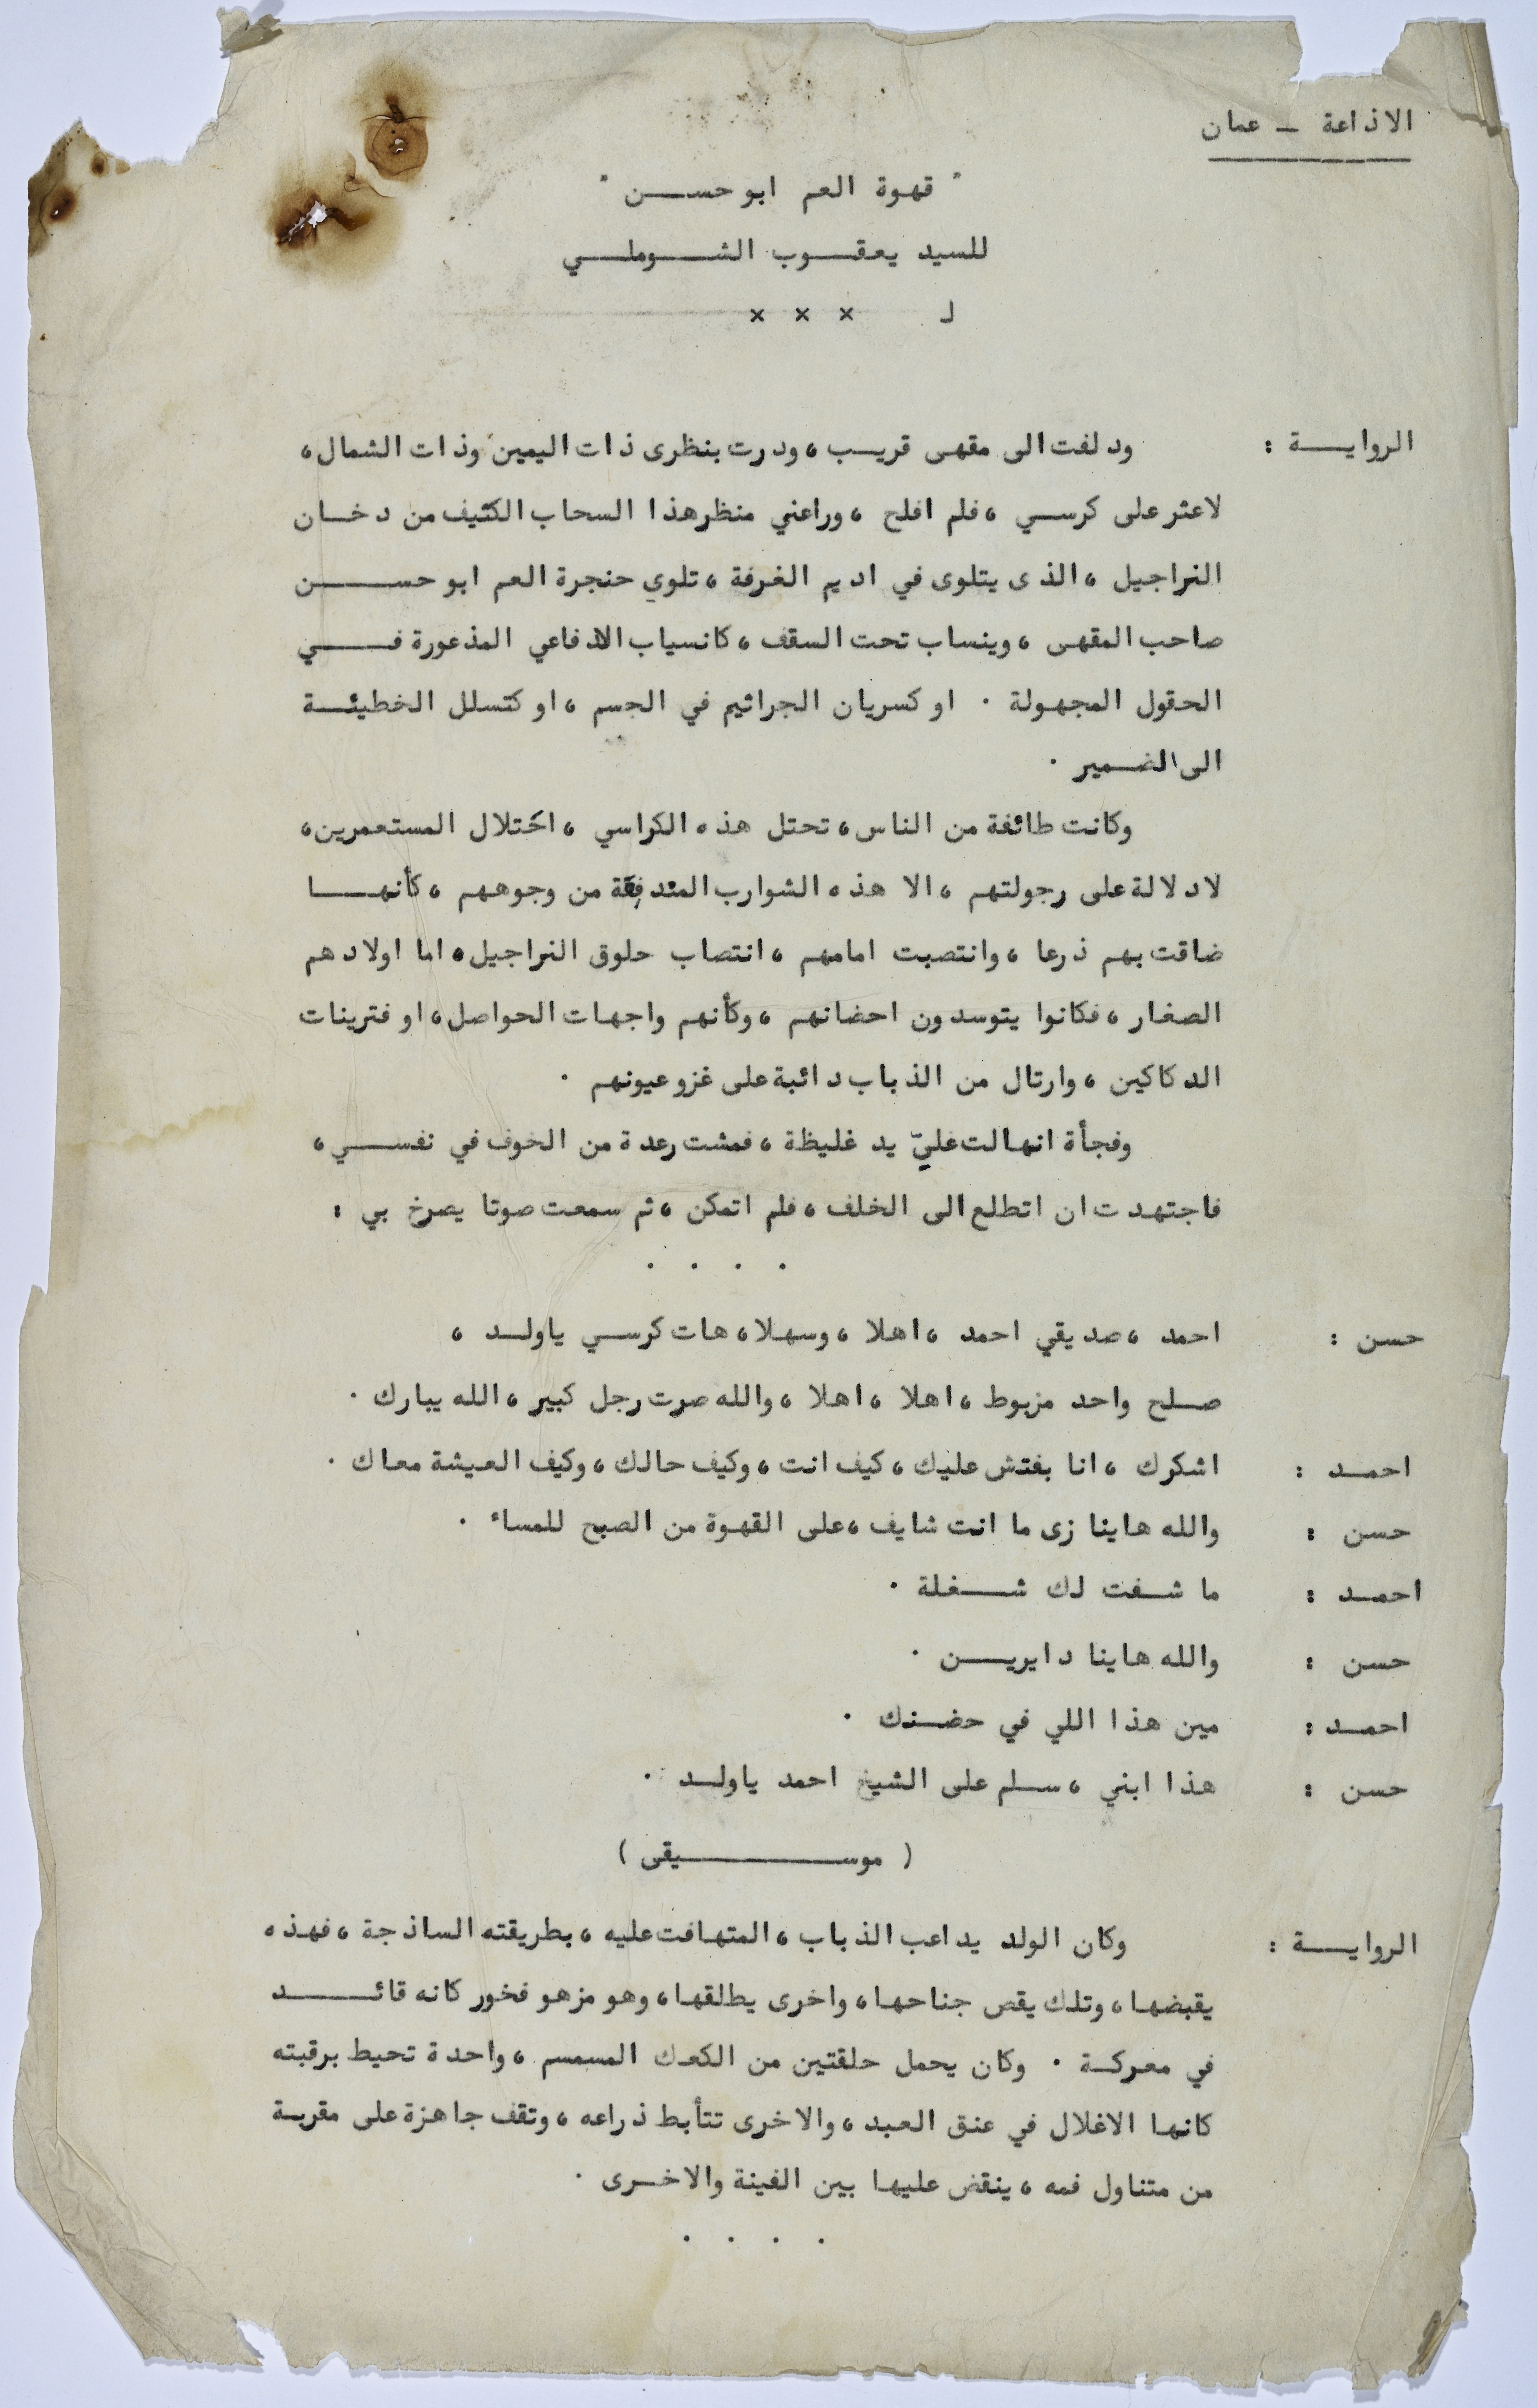 الاذاعة ـ عمان
" قهوة العم ابو حســـن "
للسيد يعقــوب الشــوملــي
لـ × × ×
الروايــة : ودلفت الى مقهى قريــب ، ودرت بنظرى ذات اليمين وذات الشمال ،
لاعثر على كرســي ، فلم افلح ، وراعني منظر هذا السحاب الكثيف من دخــان
النراجيل ، الذى يتلوى في اديم الغرفة ، تلوي حنجرة العم ابو حســـن
صاحب المقهى ، وينساب تحت السقف ، كانسياب الافاعي المذعورة فـــي
الحقول المجهولة . او كسريان الجراثيم في الجسم ، او كتسلل الخطيئــة
الى الضــمير .
وكانت طائفة من الناس ، تحتل هذه الكراسي ، احتلال المستعمرين ،
لا دلالة على رجولتهم ، الا هذه الشوارب المتدفقة من وجوههم ، كأنهـــا
ضاقت بهم ذرعا ، وانتصبت امامهم ، انتصاب حلوق النراجيل ، اما اولادهم
الصغار ، فكانوا يتوسدون احضانهم ، وكأنهم واجهات الحواصل ، او فترينات
الدكاكين ، وارتال من الذباب دائبة على غزو عيونهم .
وفجأة انهالت عليّ يد غليظة ، فمشت رعدة من الخوف في نفســـي ،
فاجتهدت ان اتطلع الى الخلف ، فلم اتمكن ، ثم سمعت صوتا يصرخ بي :
. . . .
حسن : احمد ، صديقي احمد ، اهلا ، وسهلا ، هات كرسـي ياولــد ،
صــلح واحد مزبوط ، اهلا ، اهلا ، والله صرت رجل كبير ، الله يبارك .
احمــد : اشكرك ، انا بفتش عليك ، كيف انت ، وكيف حالك ، وكيف العيشة معاك .
حسن : والله هاينا زى ما انت شايف ، على القهوة من الصبح للمساء .
احمــد : ما شــفت لك شــغلة .
حسن : والله هاينا دايريــن .
احمــد : مين هذا اللي في حضــنك .
حسن : هذا ابني ، ســلم على الشيخ احمد ياولــد .
( موســـــيقى )
الروايــة : وكان الولد يداعب الذباب ، المتهافت عليه ، بطريقته الساذجة ، فهذه
يقبضها ، وتلك يقص جناحها ، واخرى يطلقها ، وهو مزهو فخور كانه قائـــد
في معركــة . وكان يحمل حلقتين من الكعك المسمسم ، واحدة تحيط برقبته
كانها الاغلال في عنق العبد ، والاخرى تتأبط ذراعه ، وتقف جاهزة على مقربــة
من متناول فمه ، ينقض عليها بين الفينة والاخــرى .
. . . .